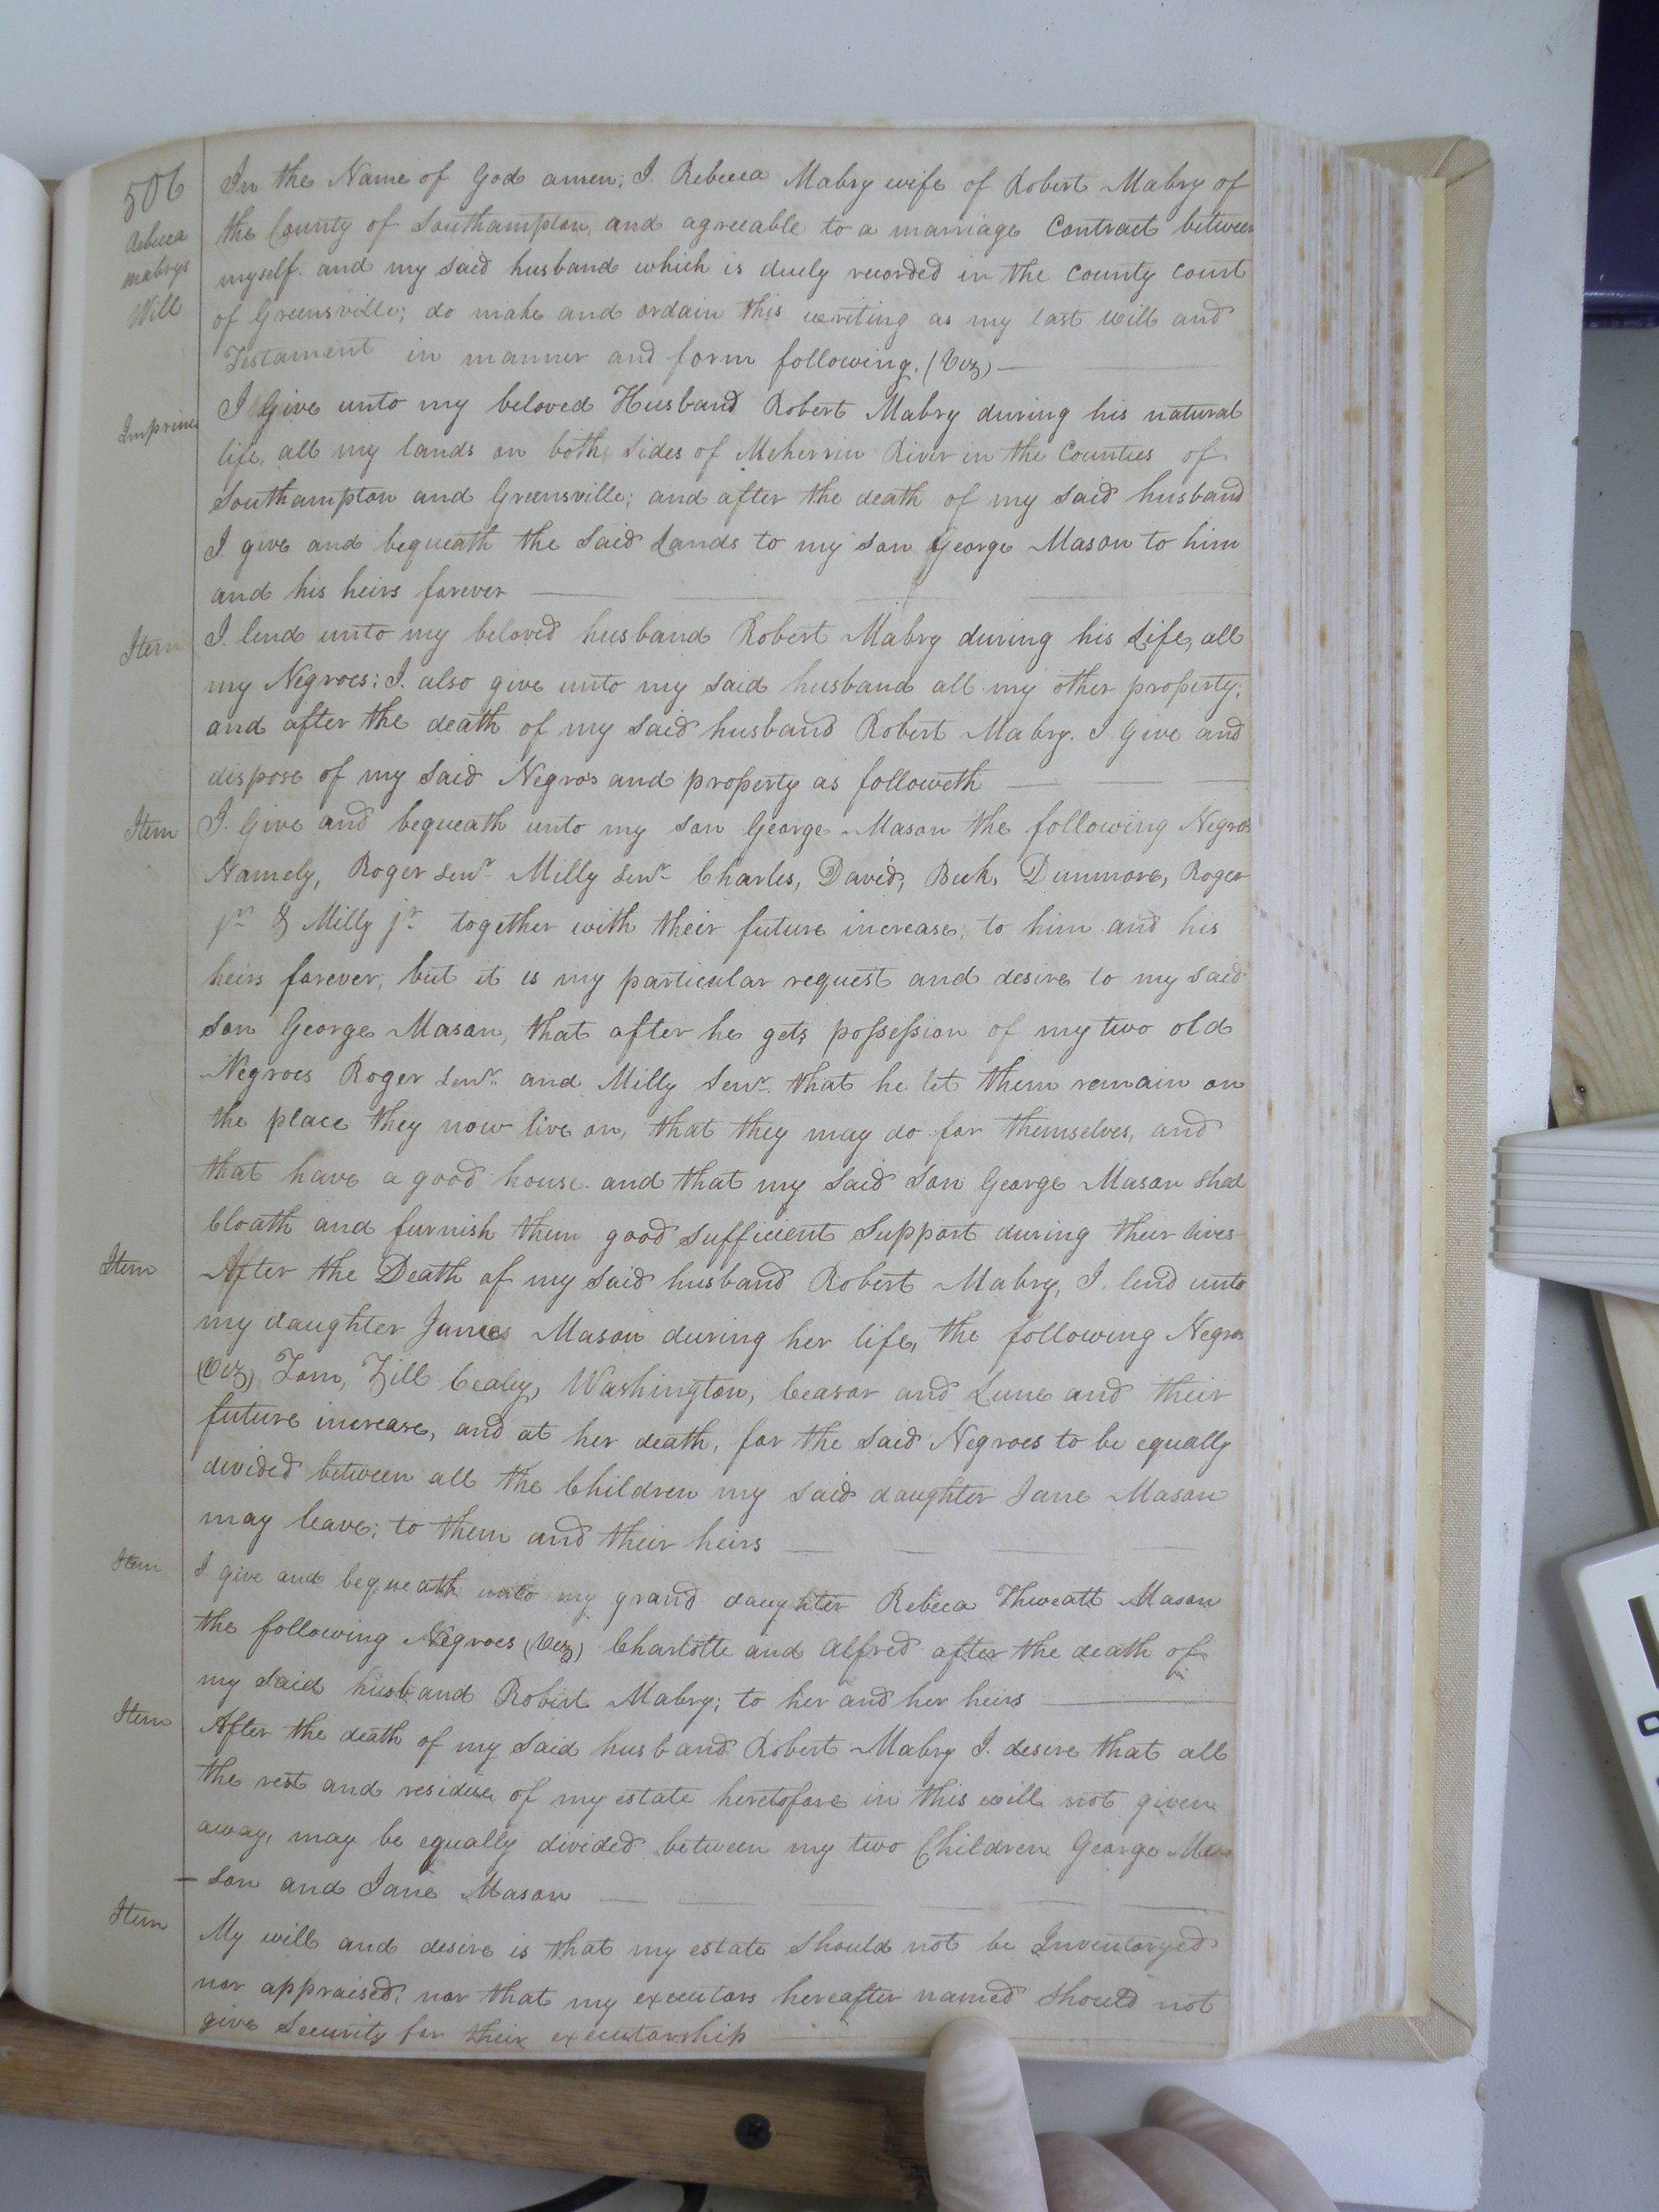 506
Rebecca
mabrys
Will
In the Name of God amen; I Rebecca Mabry wife of Robert Mabry of
the County of Southampton, and agreeable to a marriage Contract between
myself and my said husband which is duely recorded in the County Court
of Greensville; do make and ordain this writing as my last will and
Testament in manner and form following. (Viz)
Imprimes
I Give unto my beloved Husband Robert Mabry during his natural
life, all my lands on both sides of Meherrin River in the Counties of
Southampton and Greensville; and after the death of my said husband
I give and bequeath the said Lands to my son George Mason to him
and his heirs forever
Item
I lend unto my beloved husband Robert Mabry during his Life, all
my Negroes; I also give unto my said husband all my other property;
and after the death of my said husband Robert Mabry. I Give and
dispose of my said Negros and property as followeth
Item
I Give and bequeath unto my son George Mason the following Negros
Namely, Roger senr. Milly senr. Charles, David, Beck, Dunmore, Roger
jr. & Milly jr. together with their future increase; to him and his
heirs forever; but it is my particular request and desire to my said
son George Mason, that after he gets possession of my two old
Negroes Roger senr. and Milly senr. that he let them remain on
the place they now live on, that they may do for themselves, and
that have a good house and that my said son George Mason shal
Cloath and furnish them good sufficient Support during their lives
Item
After the Death of my said husband Robert Mabry, I lend unto
my daughter James Mason during her life, the following Negros
(Viz) Tom, Zill Cealey, Washington, Ceasar and Lune and their
future increase, and at her death, for the said Negroes to be equally
divided between all the Children my said daughter Jane Mason
may leave; to them and their heirs
Item
I give and bequeath unto my grand daughter Rebecca Thweatt Mason
the following Negroes (Viz) Charlotte and Alfred after the death of
my said husband Robert Mabry; to her and her heirs
Item
After the death of my said husband Robert Mabry I desire that all
the rest and residue of my estate heretofore in this will not given
away, may be equally divided between my two Children George Ma
-son and Jane Mason
Item
My will and desire is that my estate should not be Inventoryed
nor appraised; nor that my executors hereafter named should not
give Security for their executorship